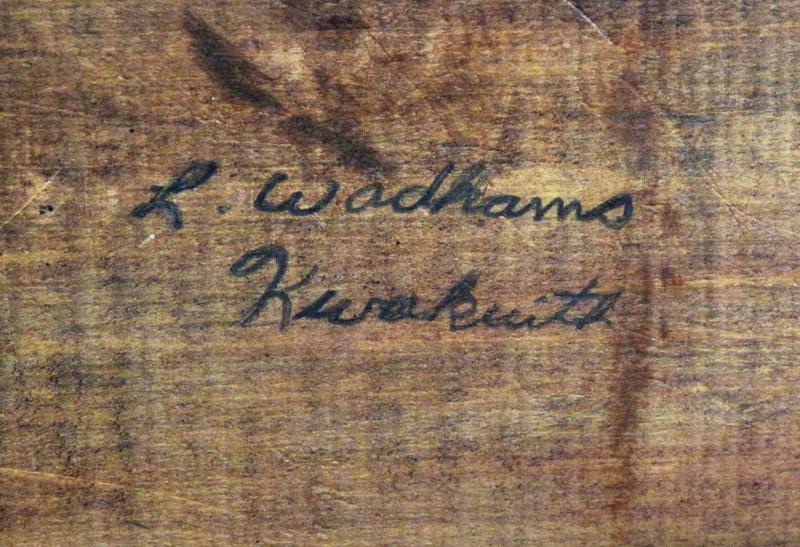 L. Wadhams
Kwakuith